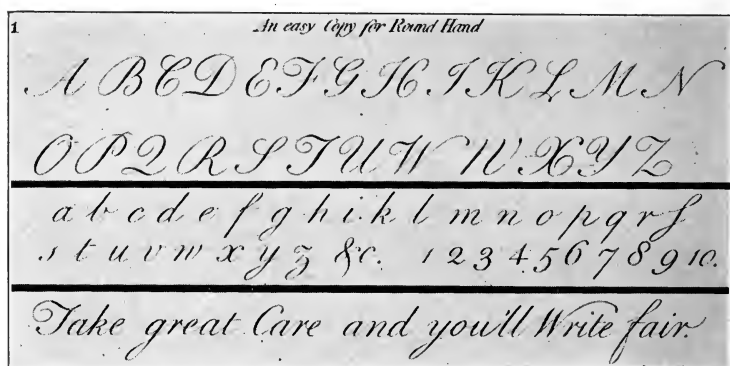 1 An easy Copy for Round Hand
A B C D E F G H I K L M N
O P Q R S T U W W X Y Z
a b c d e f g h i. k l m n o p q r ſ
s t u v w x y z &c. 1 2 3 4 5 6 7 8 9 10.
Take great Care and you'll Write fair.